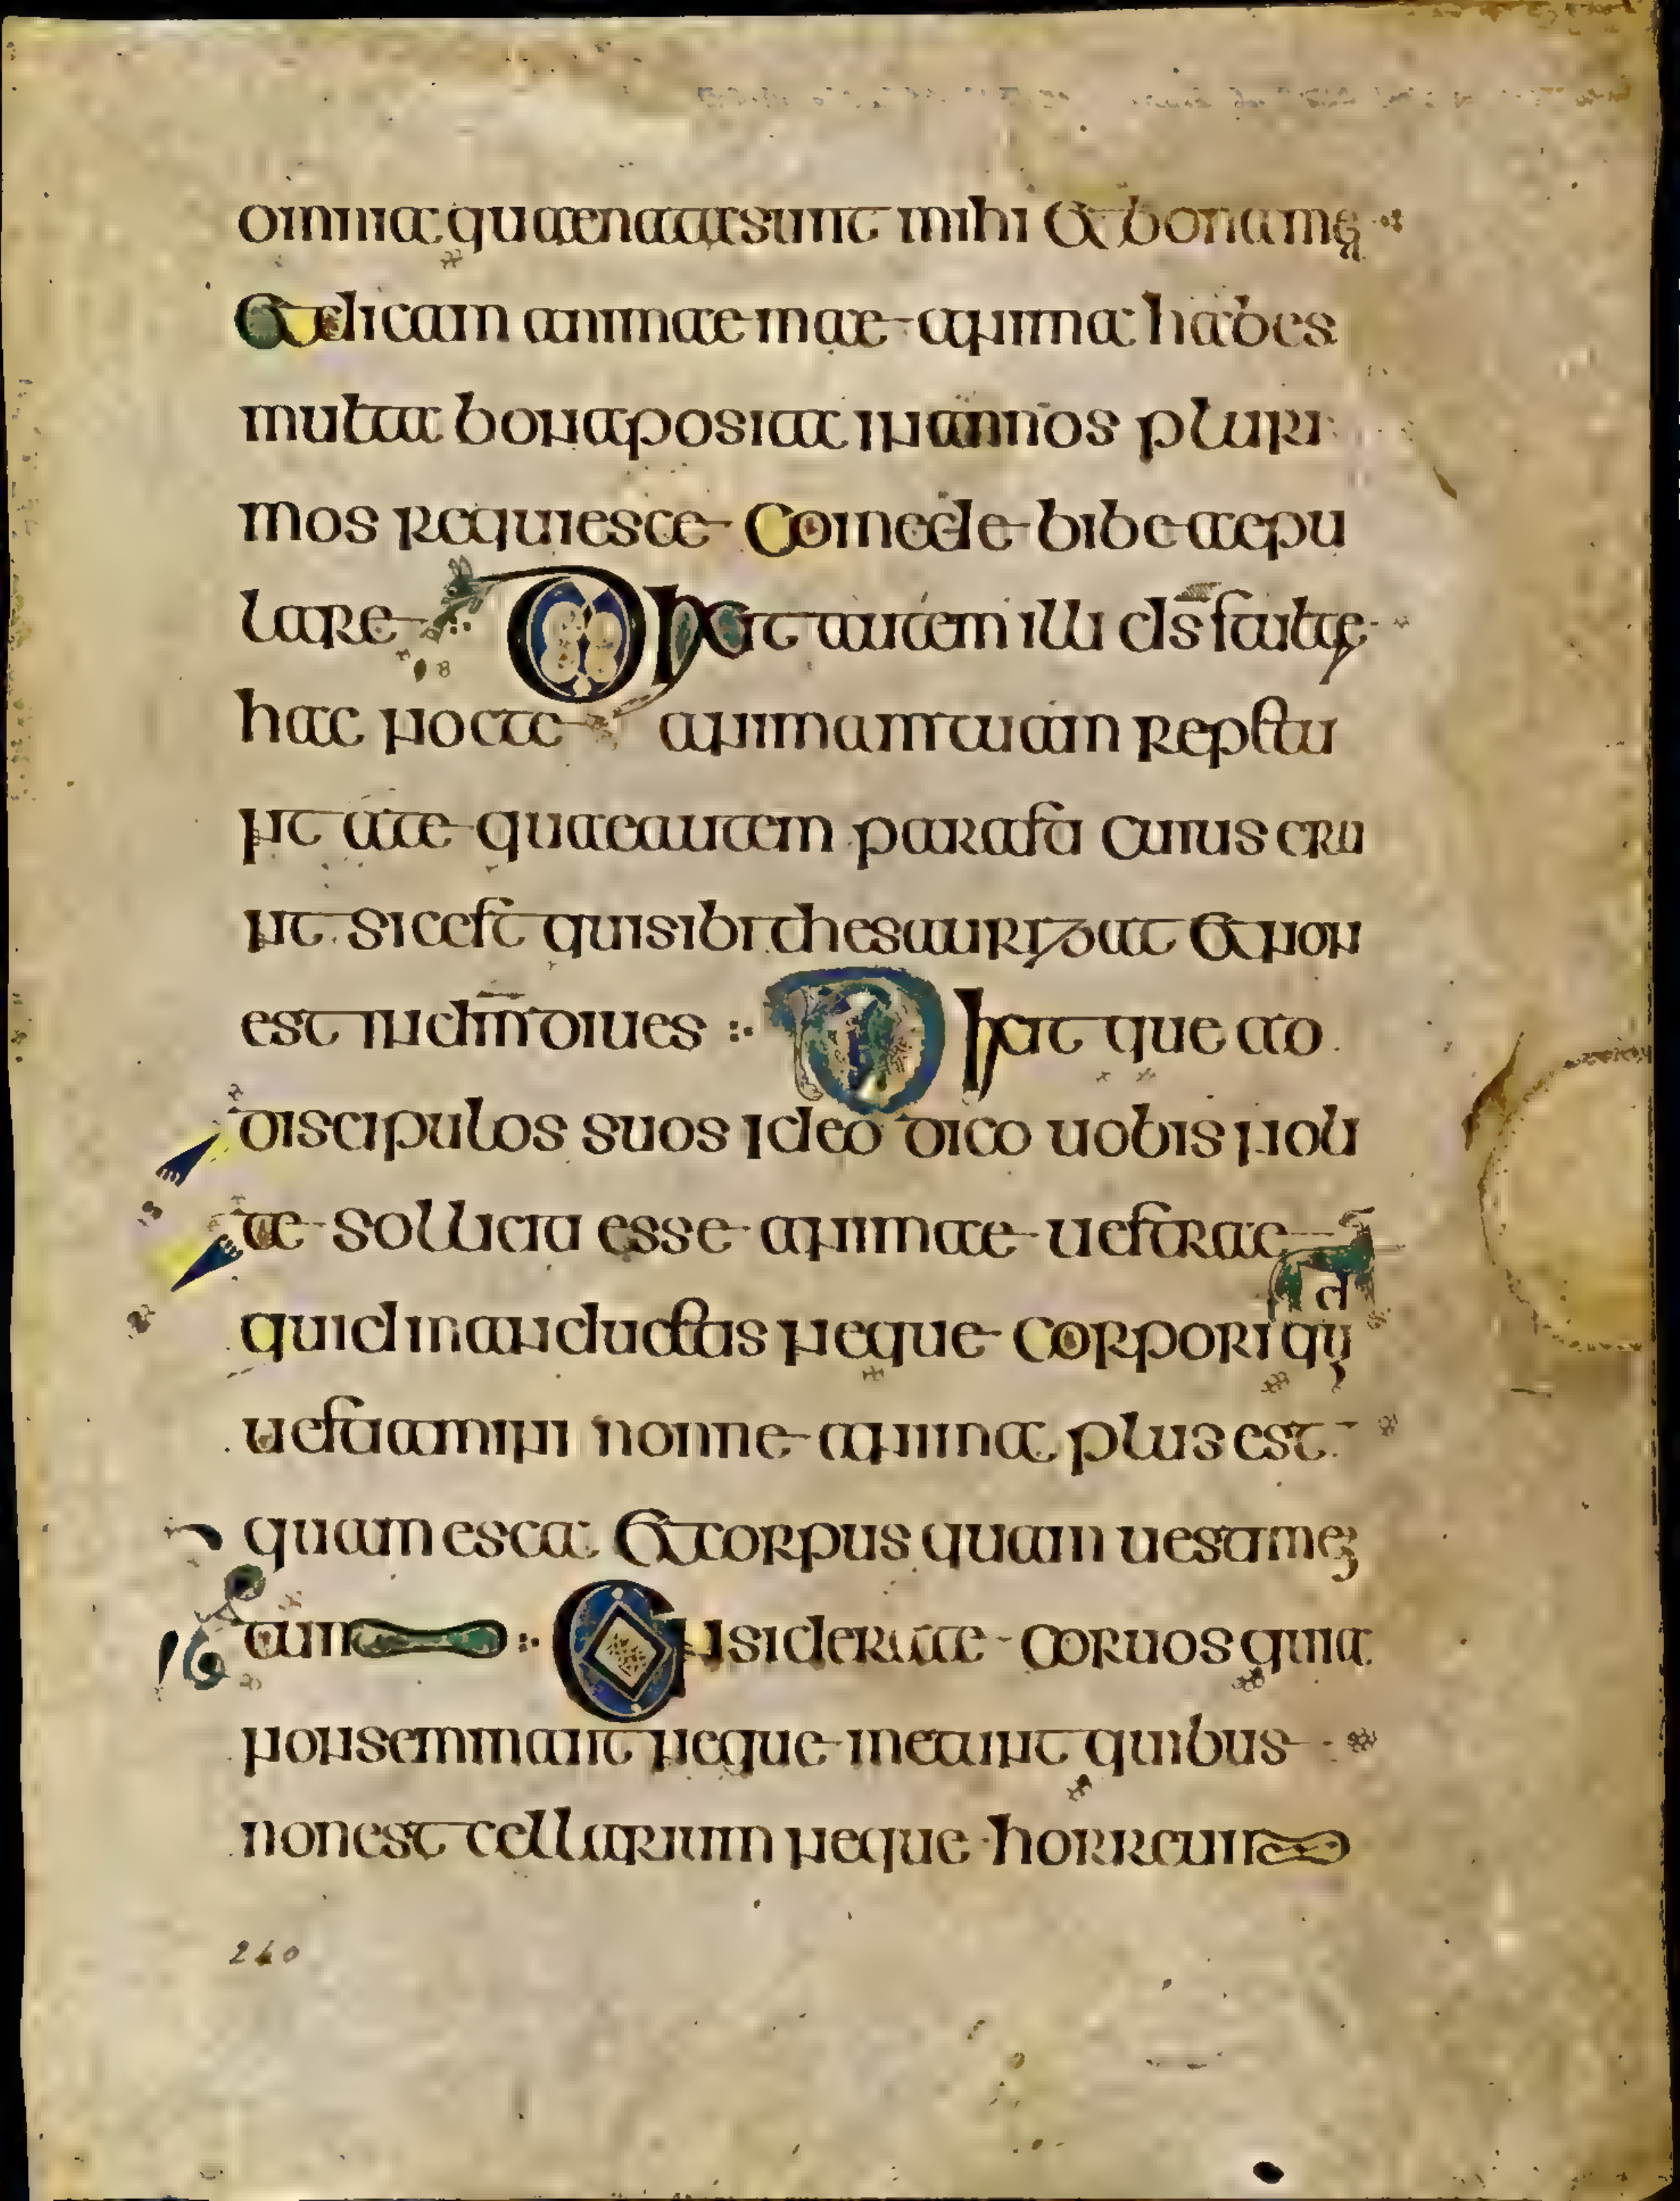 omnia quae nata sunt mihi et bona mea
et dicam animae mae anima habes
multa bona possita in annos pluri
mos requiesce comede bibe aepu
lare Dixit autem illi d̅s̅ stulte
hac nocte animam tuam repetu
nt a te quae autem parasti cuius eru
nt sic est qui sibi thesaurizat et non
est in dm̅ diues Dixit que ad
discipulos suos Ideo dico uobis noli
te solliciti esse animae uestrae
quid manducetis neque corpori quid
uestiamini nonne anima plus est
quam esca et corpus quam uestimen
tum Considerate coruos quia
non seminant neque metunt quibus
non est cellarium neque horreum
240